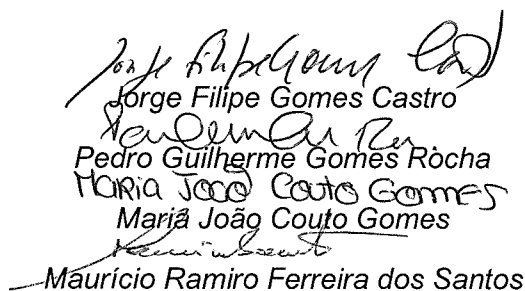 Jorge Filipe Gomes Castro
Jorge Filipe Gomes Castro
Pedro Guilherme Gomes Rocha
MARIA JOÃO COUTO GOMES
Maria João Couto Gomes
Maurício Ramiro Ferreira dos Santos